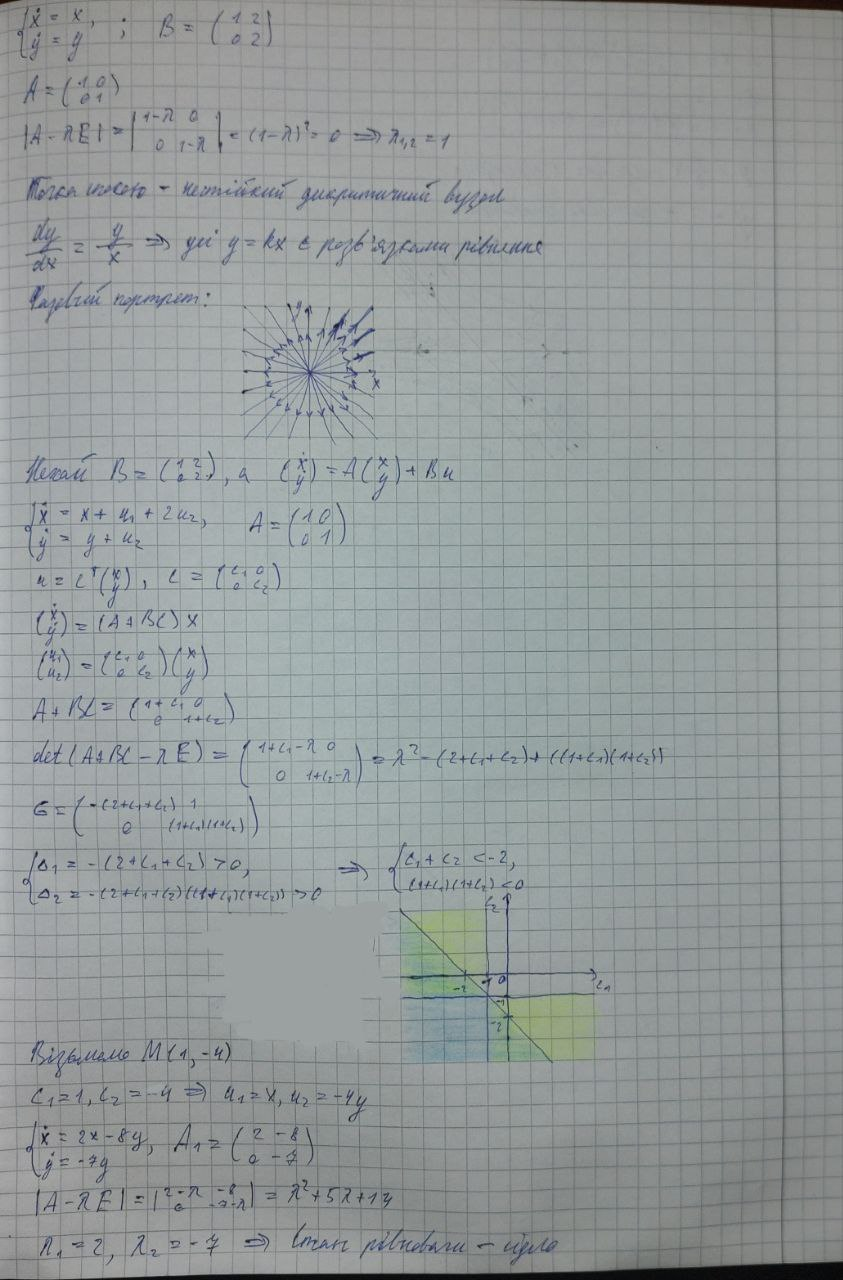 {ẋ = x, ẏ = y ; B = (1 2 0 2)
A = (1 0 0 1)
|A - λE| = |1-λ 0 0 1-λ| = (1-λ)² = 0 ⟹ λ₁,₂ = 1
Точка спокою - нестійкий дикритичний вузол
dy/dx = y/x ⟹ усі y = kx є розв'язками рівняння
Фазовий портрет:
y
x
Нехай B = (1 2 0 2), а (ẋ ẏ) = A(x y) + Bu
{ẋ = x + u₁ + 2u₂, ẏ = y + u₂ A = (1 0 0 1)
u = Cᵀ(x y), C = (c₁ 0 0 c₂)
(ẋ ẏ) = (A+BC) X
(u₁ u₂) = (c₁ 0 0 c₂)(x y)
A + BC = (1+c₁ 0 0 1+c₂)
det(A+BC - λE) = (1+c₁-λ 0 0 1+c₂-λ) = λ² - (2+c₁+c₂) + ((1+c₁)(1+c₂))
G = (-(2+c₁+c₂) 1 0 (1+c₁)(1+c₂))
{Δ₁ = -(2+c₁+c₂) > 0, Δ₂ = -(2+c₁+c₂)((1+c₁)(1+c₂)) > 0 ⟹ {c₁ + c₂ < -2, (1+c₁)(1+c₂) < 0
c₂
-2 -1 0 c₁
-1
-2
Візьмемо M(1, -4)
c₁ = 1, c₂ = -4 ⟹ u₁ = x, u₂ = -4y
{ẋ = 2x - 8y, ẏ = -7y A₁ = (2 -8 0 -7)
|A - λE| = |2-λ -8 0 -7-λ| = λ² + 5λ + 14
λ₁ = 2, λ₂ = -7 ⟹ Стан рівноваги - сідло